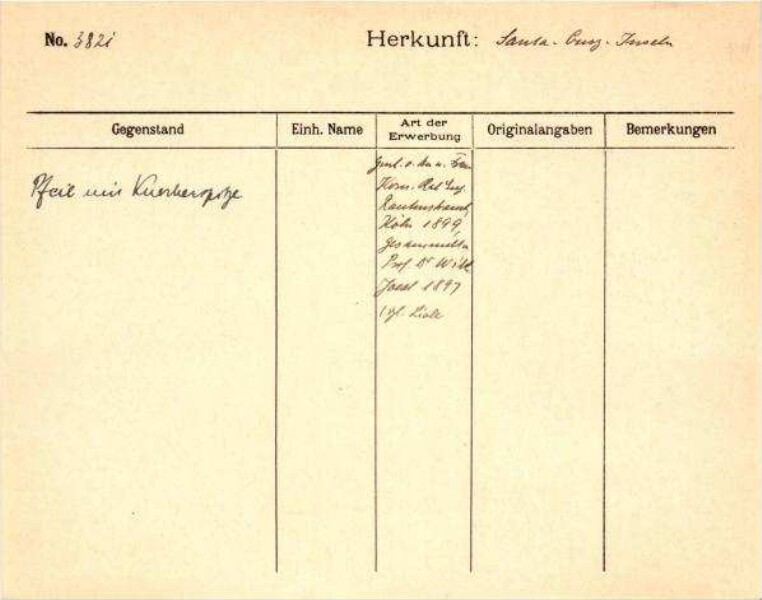 No. 382i
Herkunft: Santa-Cruz-Inseln
Gegenstand
Einh. Name
Art der
Erwerbung
Originalangaben
Bemerkungen
Pfeil mit Knochenspitze
Gesch. v. Hn u. Frau
Kom. Rat Eug.
Rautenstrauch,
Köln 1899,
gesammelt v.
Prof. Dr Wilh.
Joest 1897